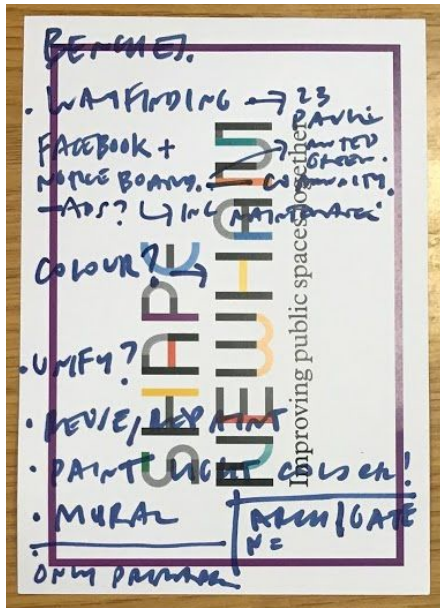 BENCHES.
· WAYFINDING → 23
FACEBOOK +
NOTICE BOARD. COMMUNITY.
- ADS? ↳ INC MAINTENANCE
COLOUR? →
· UNIFY?
· REUSE/REPAINT
· PAINT LIGHT COLOUR!
· MURAL
ARCH/GATE
N=
ONLY
SHAPE
NEWHAM
Improving public spaces together